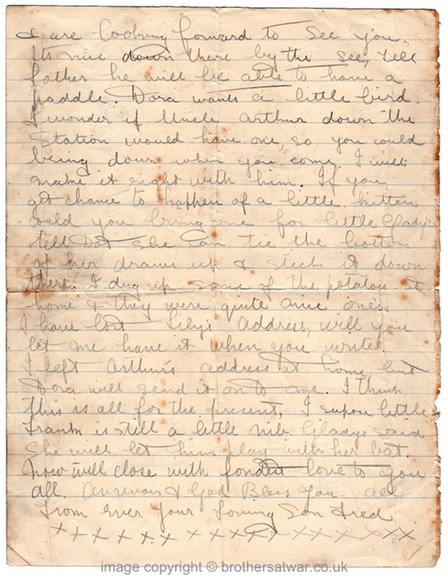 I are looking forward to see you.
Its nice down there by the see, tell
father he will be able to have a
paddle. Dora wants a little bird.
I wonder if Uncle Arthur down the
Station would have one so you could
bring down when you come. I will
make it right with him. If you
get chance to happen of a little kitten
could you bring one for little Gladys
tell Dot she can tie the bottom
of her drawers up & stick it down
there. I dug up some of the potatoes at
home & they were quite nice ones.
I have lost Lily's Address, will you
let me have it when you write.
I left Arthur's address at home but
Dora will send it on to me. I think
this is all for the present, I supose little
Frank is still a little nib Gladys said
She will let him play with her bat.
Now will close with fondest love to you
all. Au revoir & God Bless You all
From ever your loving Son Fred
x x x x x x x x x x x x x x x x x
image copyright © brothersatwar.co.uk